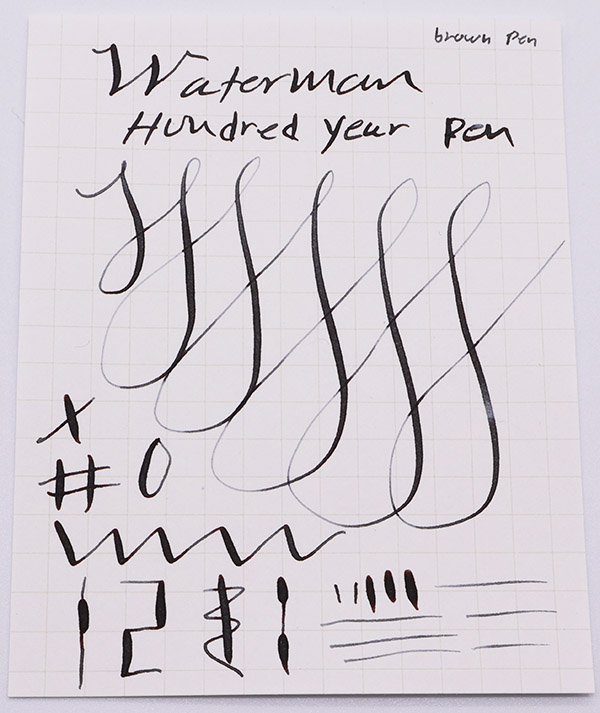 brown pen
Waterman
Hundred year pen
X
# 0